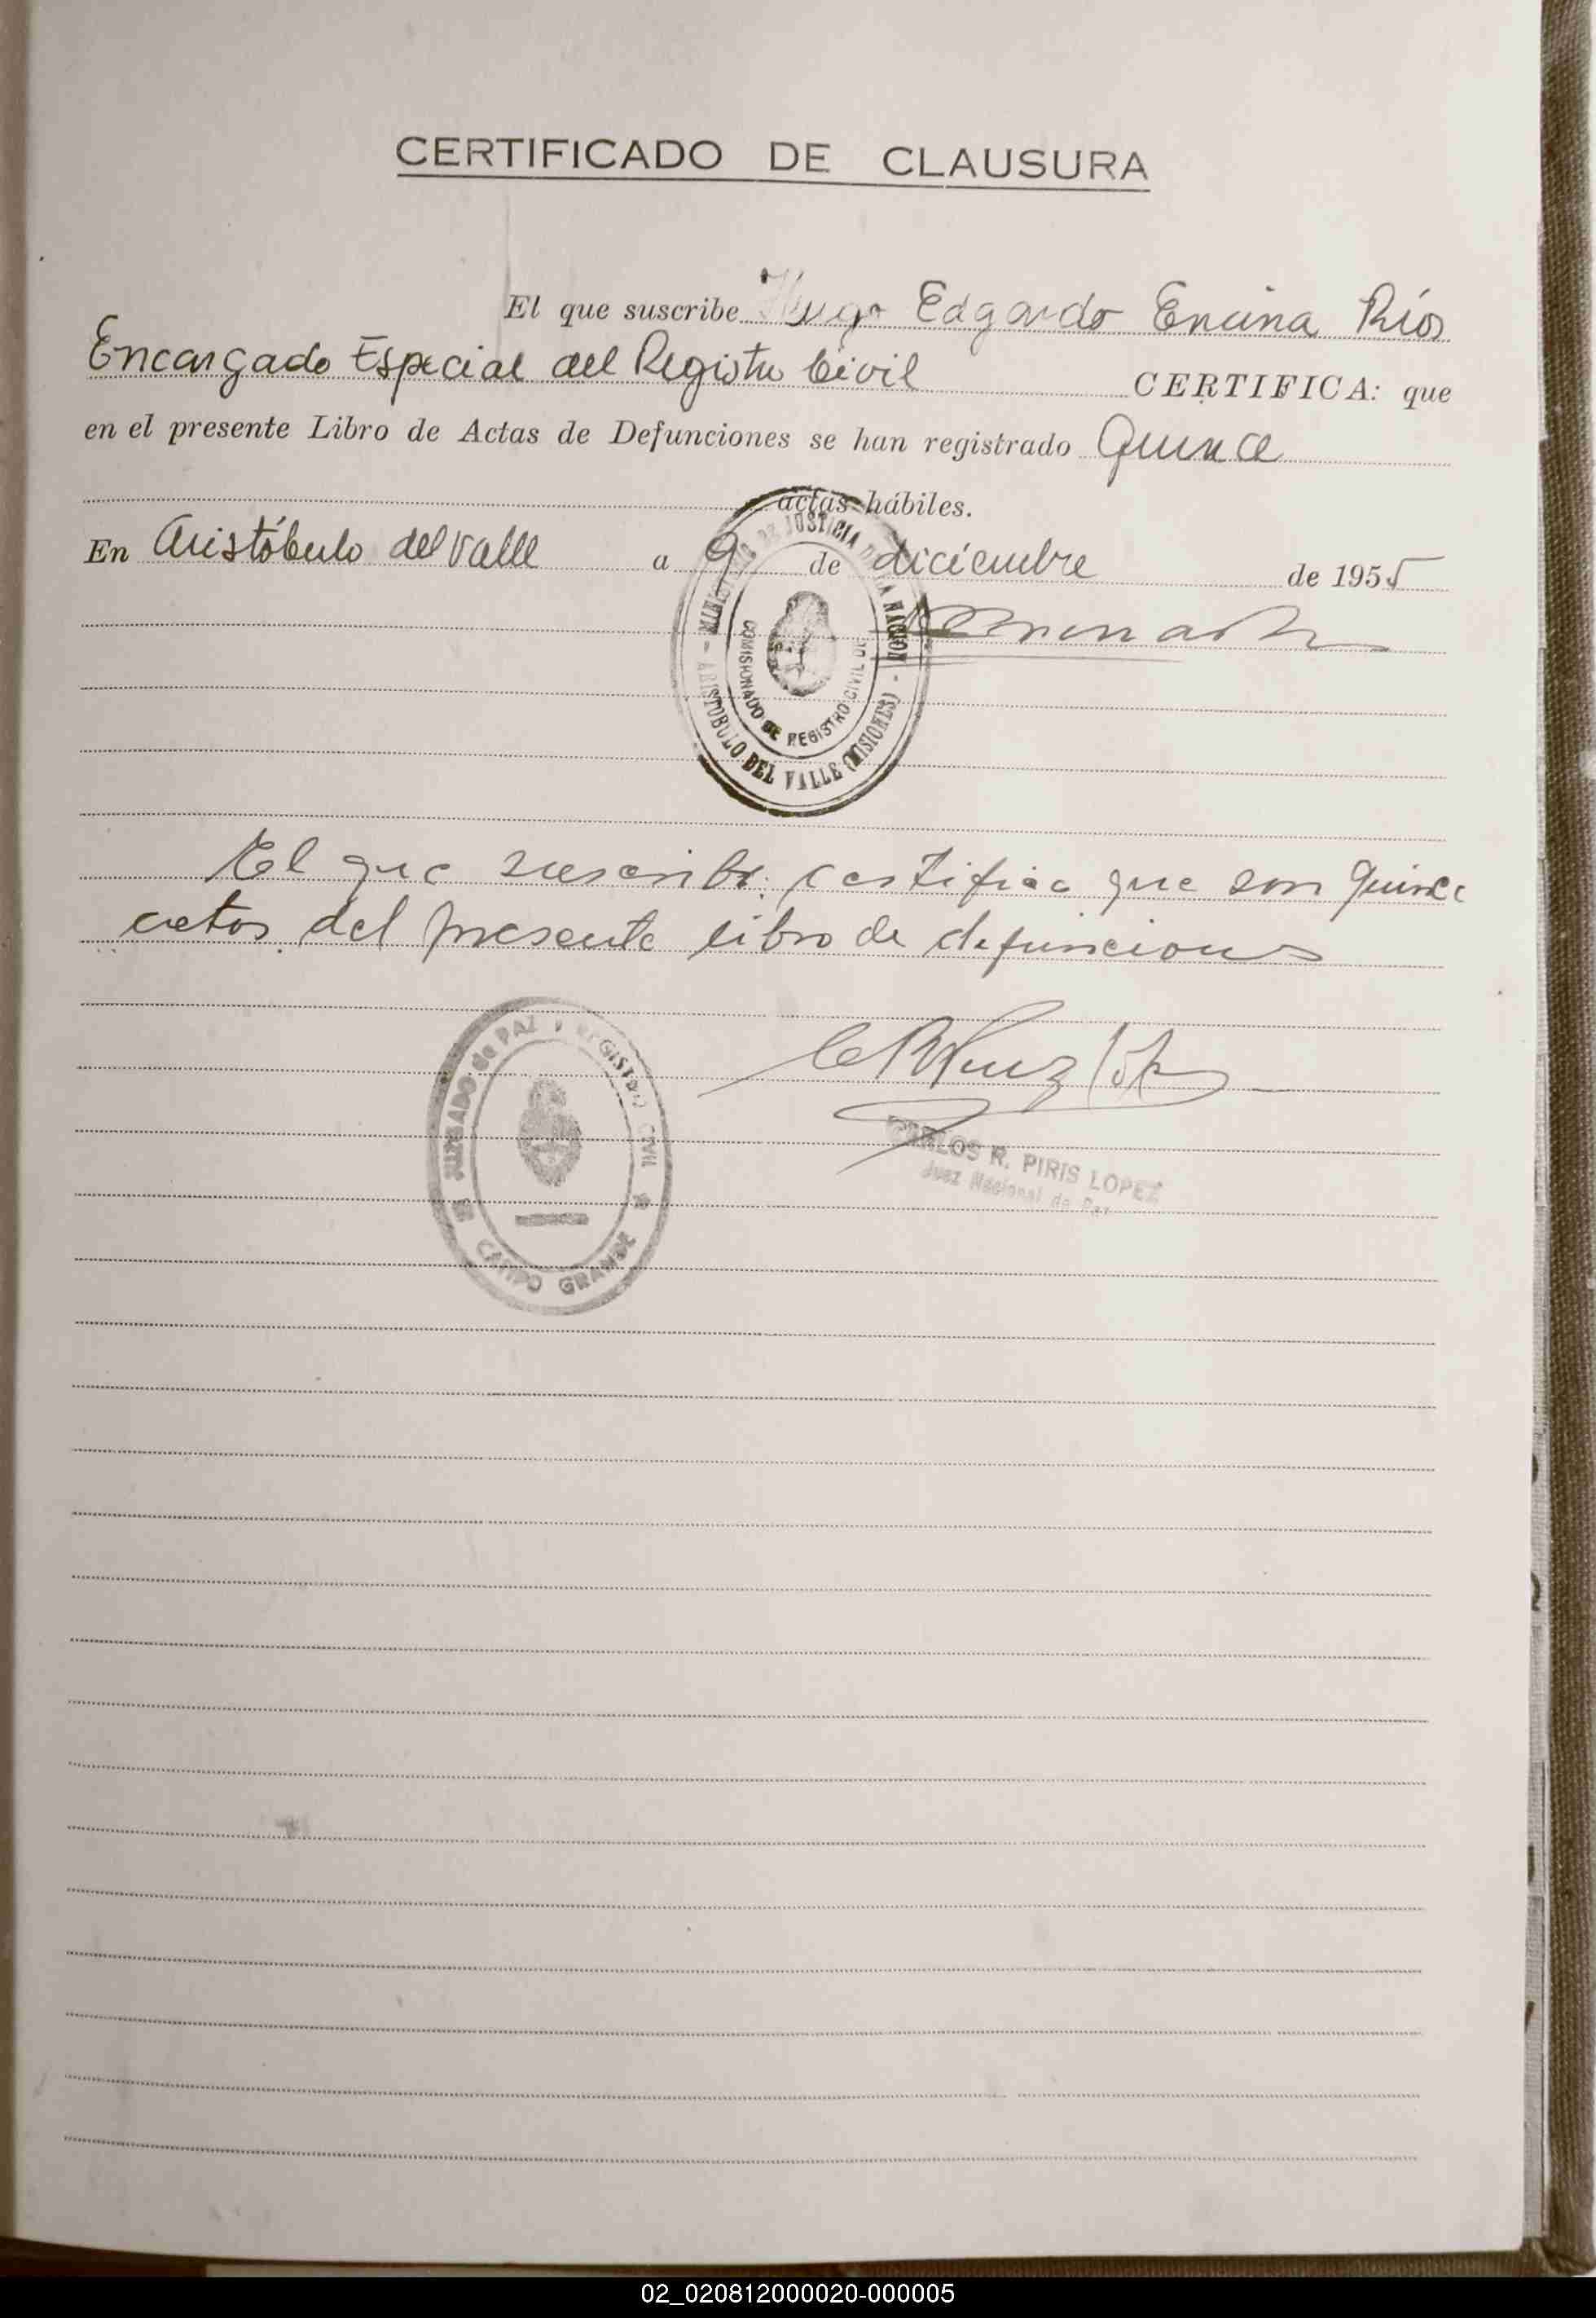 CERTIFICADO DE CLAUSURA
El que suscribe Hugo Edgardo Encina Ríos
Encargado Especial del Registro Civil CERTIFICA: que
en el presente Libro de Actas de Defunciones se han registrado Quince
actas hábiles.
En Aristóbulo del Valle a 9 de diciembre de 1955
MINISTERIO DE JUSTICIA DE LA NACION
COMISIONADO DE REGISTRO CIVIL DE
ARISTOBULO DEL VALLE (MISIONES)
El que suscribe certifica que son quince
actos del presente libro de defunciones
JUZGADO de PAZ Y REGISTRO CIVIL
DE CAMPO GRANDE
CARLOS R. PIRIS LOPEZ
Juez Nacional de Paz
02_020812000020-000005